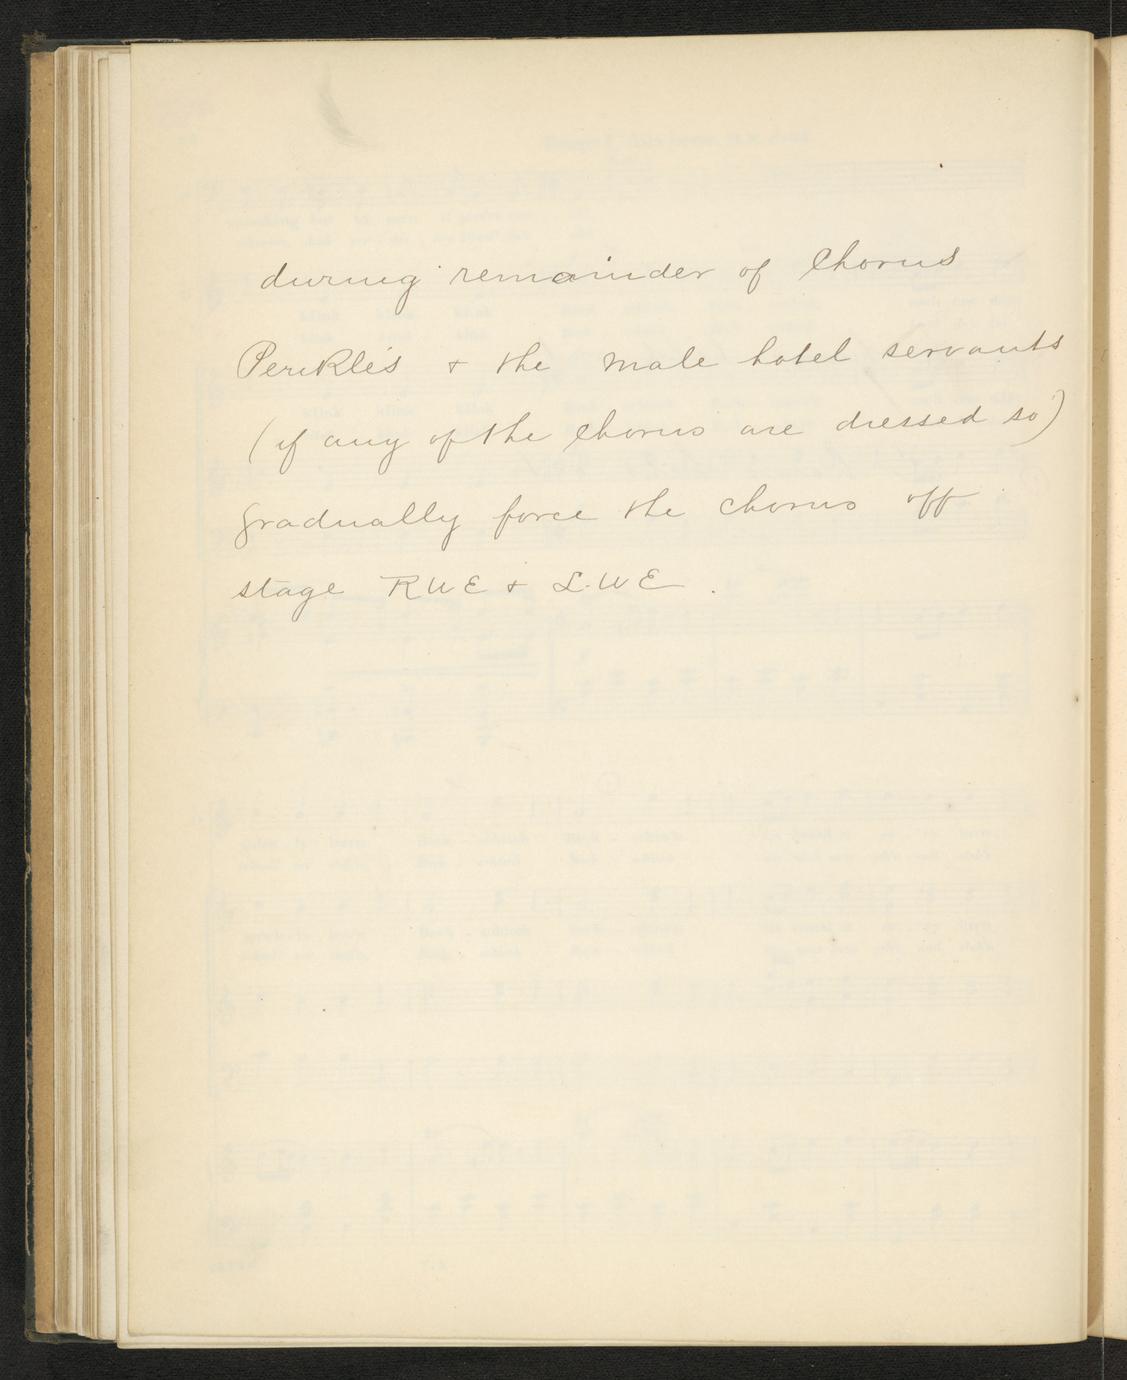 during remainder of Chorus
Perikles + the male hotel servants
(if any of the chorus are dressed so)
gradually force the chorus off
stage R U E + L. U E.